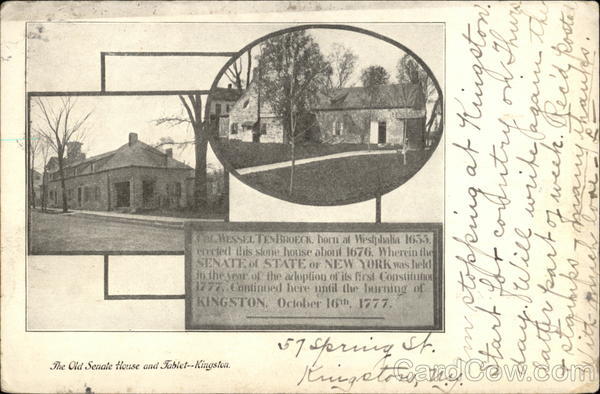 COL. WESSEL TENBROECK, born at Westphalia 1635,
erected this stone house about 1676. Wherein the
SENATE of STATE of NEW YORK was held
in the year of the adoption of its first Constitution
1777. Continued here until the burning of
KINGSTON, October 16th, 1777.
The Old Senate House and Tablet--Kingston.
57 Spring St.
Kingston, Ny.
am stopping at Kingston.
Start for country on Thurs
day. Will write again the
latter part of week. Rec'd Postal
& stamps, many thanks.
with love
CardCow.com